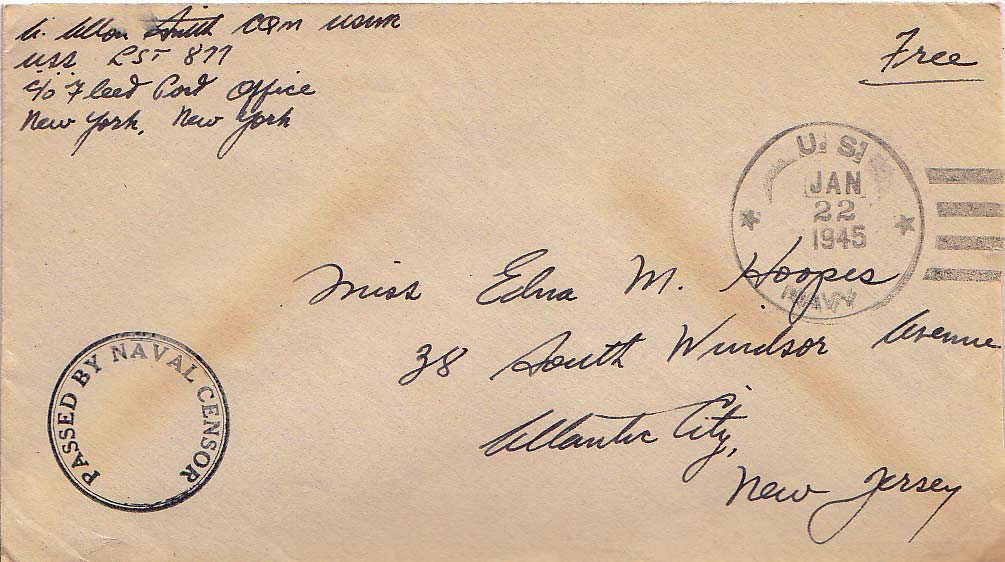 A. Allon Smith CQM USNR
USS LST 877
c/o Fleet Post Office
New York, New York
Free
U. S.
JAN
22
1945
NAVY
Miss Edna M. Hoopes
38 South Windsor Avenue
Atlantic City,
New Jersey
PASSED BY NAVAL CENSOR